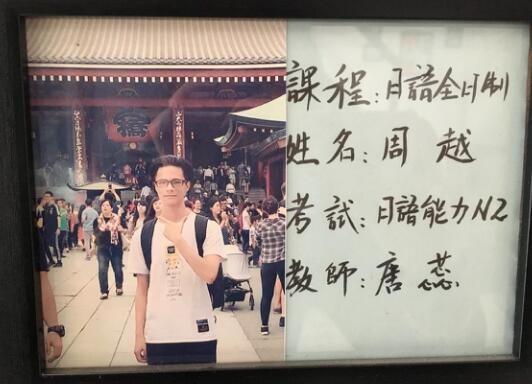 課程:日語全日制
姓名:周 越
考試:日語能力N2
教師:唐 蕊